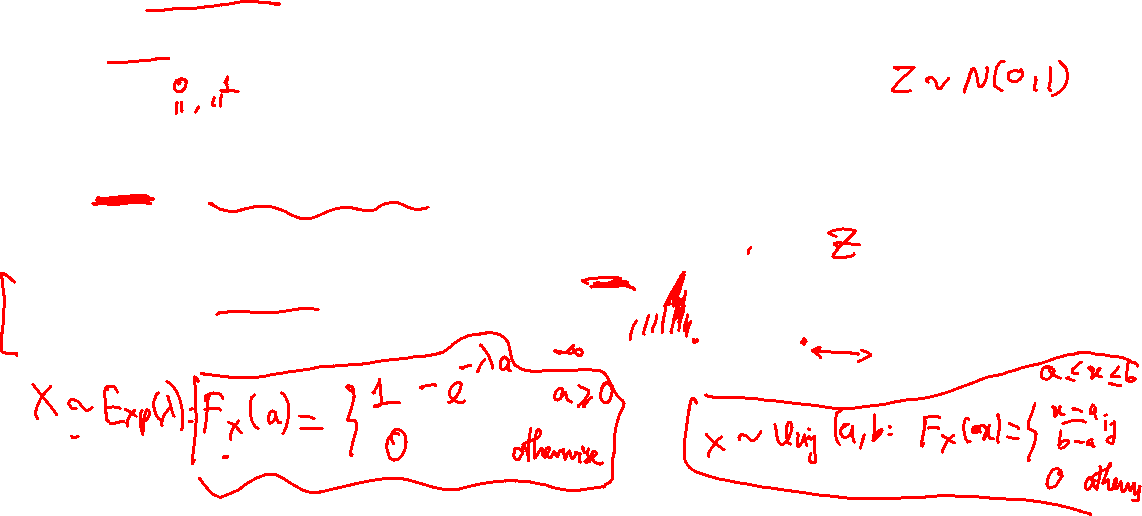 Z ~ N(0,1)
0, 1
Z
-∞
X ~ Exp(λ): F_X(a) = { 1 - e^{-λa} a ≥ 0
0 otherwise
a ≤ x ≤ b
X ~ Unif (a, b: F_X(x) = { x-a / b-a if
0 otherw